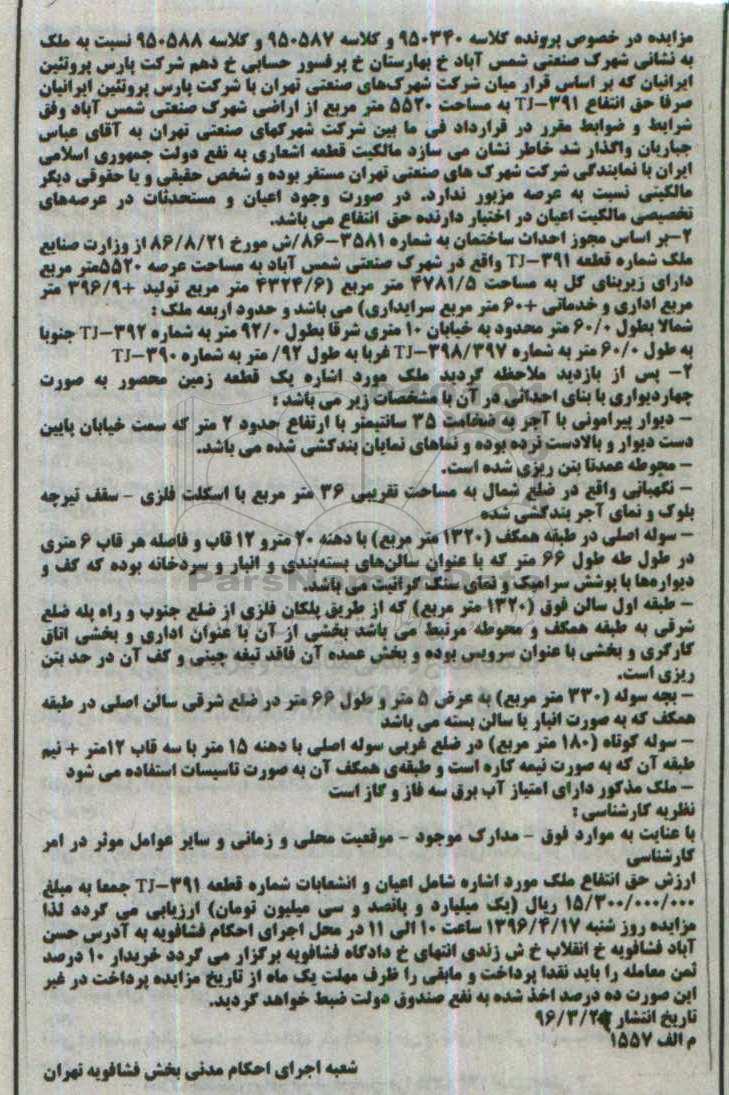 مزایده در خصوص پرونده کلاسه ۹۵۰۳۴۰ و کلاسه ۹۵۰۵۸۷ و کلاسه ۹۵۰۵۸۸ نسبت به ملک
به نشانی شهرک صنعتی شمس آباد خ بهارستان خ پرفسور حسابی خ دهم شرکت پارس پروتئین
ایرانیان که بر اساس قرار میان شرکت شهرک‌های صنعتی تهران با شرکت پارس پروتئین ایرانیان
صرفا حق انتفاع TJ-۳۹۱ به مساحت ۵۵۲۰ متر مربع از اراضی شهرک صنعتی شمس آباد وفق
شرایط و ضوابط مقرر در قرارداد فی ما بین شرکت شهرکهای صنعتی تهران به آقای عباس
جباریان واگذار شد خاطر نشان می سازد مالکیت قطعه اشعاری به نفع دولت جمهوری اسلامی
ایران با نمایندگی شرکت شهرک های صنعتی تهران مستقر بوده و شخص حقیقی و یا حقوقی دیگر
مالکیتی نسبت به عرصه مزبور ندارد. در صورت وجود اعیان و مستحدثات در عرصه‌های
تخصیصی مالکیت اعیان در اختیار دارنده حق انتفاع می باشد.
۲-بر اساس مجوز احداث ساختمان به شماره ۳۵۸۱-۸۶/ش مورخ ۸۶/۸/۲۱ از وزارت صنایع
ملک شماره قطعه TJ-۳۹۱ واقع در شهرک صنعتی شمس آباد به مساحت عرصه ۵۵۲۰متر مربع
دارای زیربنای کل به مساحت ۴۷۸۱/۵ متر مربع (۴۳۲۴/۶ متر مربع تولید +۳۹۶/۹ متر
مربع اداری و خدماتی +۶۰ متر مربع سرایداری) می باشد و حدود اربعه ملک :
شمالا بطول ۶۰/۰ متر محدود به خیابان ۱۰ متری شرقا بطول ۹۲/۰ متر به شماره TJ-۳۹۲ جنوبا
به طول ۶۰/۰ متر به شماره TJ-۳۹۸/۳۹۷ غربا به طول ۹۲/ متر به شماره TJ-۳۹۰
۲- پس از بازدید ملاحظه گردید ملک مورد اشاره یک قطعه زمین محصور به صورت
چهاردیواری با بنای احداثی در آن با مشخصات زیر می باشد :
- دیوار پیرامونی با آجر به ضخامت ۳۵ سانتیمتر با ارتفاع حدود ۲ متر که سمت خیابان پایین
دست دیوار و بالادست نرده بوده و نماهای نمایان بندکشی شده می باشد.
- محوطه عمدتا بتن ریزی شده است.
- نگهبانی واقع در ضلع شمال به مساحت تقریبی ۳۶ متر مربع با اسکلت فلزی - سقف تیرچه
بلوک و نمای آجر بندکشی شده
- سوله اصلی در طبقه همکف (۱۳۲۰ متر مربع) با دهنه ۲۰ مترو ۱۲ قاب و فاصله هر قاب ۶ متری
در طول طه طول ۶۶ متر که با عنوان سالن‌های بسته‌بندی و انبار و سردخانه بوده که کف و
دیواره‌ها با پوشش سرامیک و نمای سنگ گرانیت می باشد.
- طبقه اول سالن فوق (۱۳۲۰ متر مربع) که از طریق پلکان فلزی از ضلع جنوب و راه پله ضلع
شرقی به طبقه همکف و محوطه مرتبط می باشد بخشی از آن با عنوان اداری و بخشی اتاق
کارگری و بخشی با عنوان سرویس بوده و بخش عمده آن فاقد تیغه چینی و کف آن در حد بتن
ریزی است.
- بچه سوله (۳۳۰ متر مربع) به عرض ۵ متر و طول ۶۶ متر در ضلع شرقی سالن اصلی در طبقه
همکف که به صورت انبار با سالن بسته می باشد
- سوله کوتاه (۱۸۰ متر مربع) در ضلع غربی سوله اصلی با دهنه ۱۵ متر با سه قاب ۱۲متر + نیم
طبقه آن که به صورت نیمه کاره است و طبقه‌ی همکف آن به صورت تاسیسات استفاده می شود
- ملک مذکور دارای امتیاز آب برق سه فاز و گاز است
نظریه کارشناسی :
با عنایت به موارد فوق - مدارک موجود - موقعیت محلی و زمانی و سایر عوامل موثر در امر
کارشناسی
ارزش حق انتفاع ملک مورد اشاره شامل اعیان و انشعابات شماره قطعه TJ-۳۹۱ جمعا به مبلغ
۱۵/۳۰۰/۰۰۰/۰۰۰ ریال (یک میلیارد و پانصد و سی میلیون تومان) ارزیابی می گردد لذا
مزایده روز شنبه ۱۳۹۶/۴/۱۷ ساعت ۱۰ الی ۱۱ در محل اجرای احکام فشافویه به آدرس حسن
آباد فشافویه خ انقلاب خ ش زندی انتهای خ دادگاه فشافویه برگزار می گردد خریدار ۱۰ درصد
ثمن معامله را باید نقدا پرداخت و مابقی را ظرف مهلت یک ماه از تاریخ مزایده پرداخت در غیر
این صورت ده درصد اخذ شده به نفع صندوق دولت ضبط خواهد گردید.
تاریخ انتشار
م الف ۱۵۵۷
شعبه اجرای احکام مدنی بخش فشافویه تهران